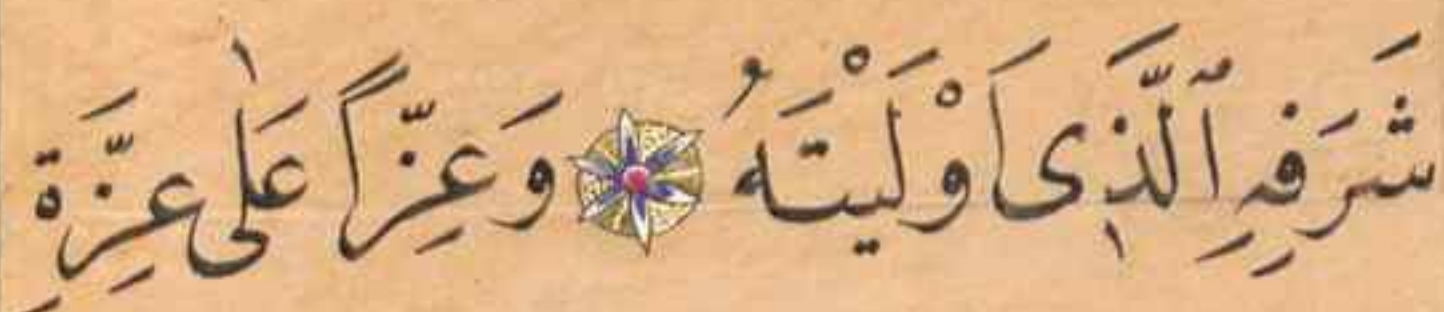 شَرَفِهِ ٱلَّذِى اَوْلَيْتَهُ وَعِزًّا عَلٰى عِزَّةِ